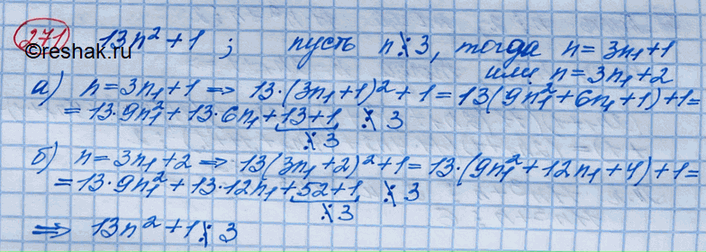 271 13n² + 1 ; пусть n ⋮̸ 3, тогда n = 3n₁ + 1
©reshak.ru
или n = 3n₁ + 2
а) n = 3n₁ + 1 ⇒ 13·(3n₁ + 1)² + 1 = 13(9n₁² + 6n₁ + 1) + 1 =
= 13·9n₁² + 13·6n₁ + 13 + 1 ⋮̸ 3
⋮̸ 3
б) n = 3n₁ + 2 ⇒ 13(3n₁ + 2)² + 1 = 13·(9n₁² + 12n₁ + 4) + 1 =
= 13·9n₁² + 13·12n₁ + 52 + 1 ⋮̸ 3
⋮̸ 3
⇒ 13n² + 1 ⋮̸ 3